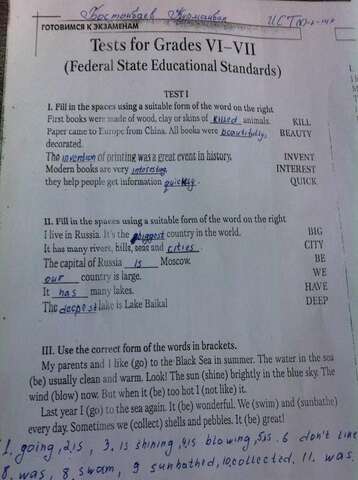 Бостонбаев Нурманбет ИСТ
ГОТОВИМСЯ К ЭКЗАМЕНАМ
Tests for Grades VI–VII
(Federal State Educational Standards)
TEST I
I. Fill in the spaces using a suitable form of the word on the right
First books were made of wood, clay or skins of killed animals. KILL
Paper came to Europe from China. All books were beautifully BEAUTY
decorated.
The invention of printing was a great event in history. INVENT
Modern books are very interesting, INTEREST
they help people get information quickly. QUICK
II. Fill in the spaces using a suitable form of the word on the right
I live in Russia. It's the biggest country in the world. BIG
It has many rivers, hills, seas and cities. CITY
The capital of Russia is Moscow. BE
our country is large. WE
It has many lakes. HAVE
The deepest lake is Lake Baikal DEEP
III. Use the correct form of the words in brackets.
My parents and I like (go) to the Black Sea in summer. The water in the sea
(be) usually clean and warm. Look! The sun (shine) brightly in the blue sky. The
wind (blow) now. But when it (be) too hot I (not like) it.
Last year I (go) to the sea again. It (be) wonderful. We (swim) and (sunbathe)
every day. Sometimes we (collect) shells and pebbles. It (be) great!
1. going, 2, is, 3. is shining, 4, is blowing, 5, is. 6 don't like
8. was, 8, swam, 9 sunbathed, 10, collected. 11. was.